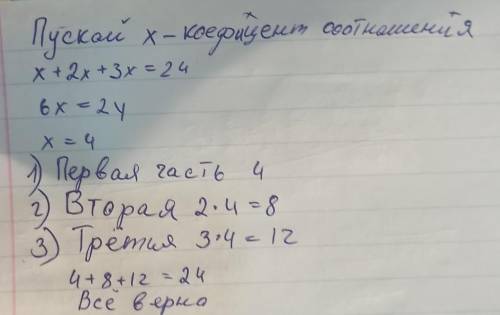 Пускай x – коефицент соотношения
x + 2x + 3x = 24
6x = 24
x = 4
1) Первая часть 4
2) Вторая 2·4=8
3) Третия 3·4=12
4+8+12 =24
Всё верно